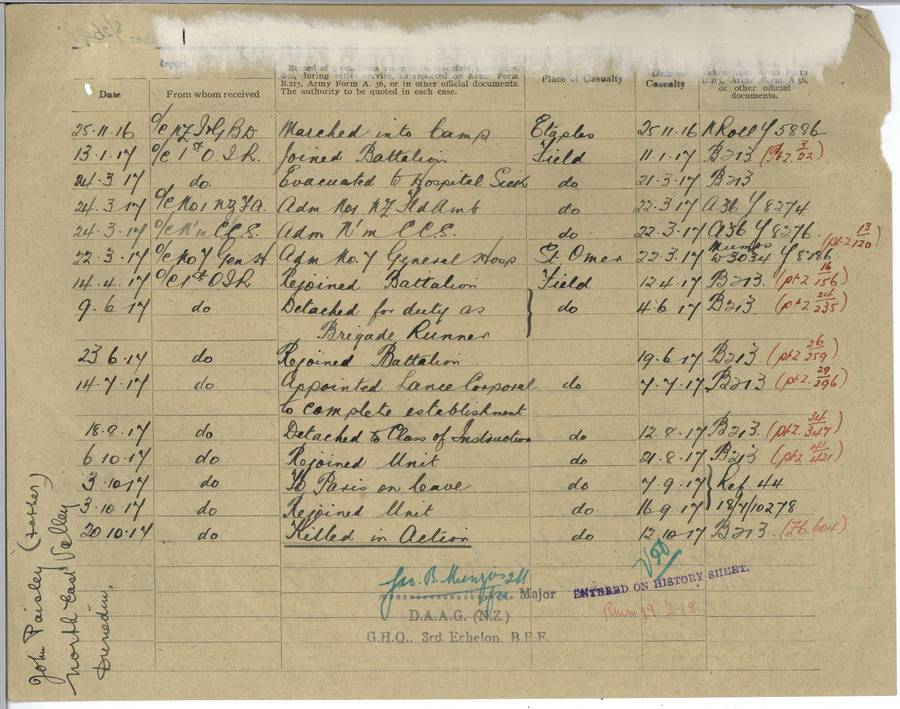 Report
Record of promotions, reductions, transfers, casualties,
&c., during active service, as reported on Army Form
B.213, Army Form A. 36, or in other official documents.
The authority to be quoted in each case.
Date From whom received Place of Casualty Date of Casualty B.213, Army Form A.36, or other official documents.
25.11.16 O/C NZ I & G B D Marched into Camp Etaples 25.11.16 N Roll Y 5886
13.1.17 O/C 1st O.I.R. Joined Battalion Field 11.1.17 B213 (Pt 2 3/22)
24.3.17 do. Evacuated to Hospital Sick do 21.3.17 B213
24.3.17 O/C No 1 NZ F.A. Adm No 1 NZ Fd Amb do 22.3.17 A36 Y 8274
24.3.17 O/C N'm C.C.S. Adm N'm C.C.S. do 22.3.17 A36 Y 8276 (pt 2 13/120)
22.3.17 O/C No 7 Gen H Adm No. 7 General Hosp St. Omer 22.3.17 Mumps W3034 Y 8786
14.4.17 O/C 1st O I R Rejoined Battalion Field 12.4.17 B213 (pt 2 16/156)
9.6.17 do Detached for duty as do 4.6.17 B213 (pt 2 24/235)
Brigade Runner
23.6.17 do Rejoined Battalion 19.6.17 B213 (pt 2 26/259)
14.7.17 do Appointed Lance Corporal do 7.7.17 B213 (pt 2 29/296)
to complete establishment
18.8.17 do Detached to Class of Instruction do 12.8.17 B213 (pt 2 34/347)
6.10.17 do Rejoined Unit do 21.8.17 B213 (pt 2 41/421)
3.10.17 do To Paris on leave do 7.9.17 Ref 44
3.10.17 do Rejoined Unit do 16.9.17 18/7/10278
20.10.17 do Killed in Action do 12.10.17 B213 (Z6.604)
Geo. B. Munro Major
D.A.A.G. (N.Z.)
G.H.Q., 3rd. Echelon, B.E.F.
ENTERED ON HISTORY SHEET.
19.3.18
John Paisley (father)
North East Valley
Dunedin.